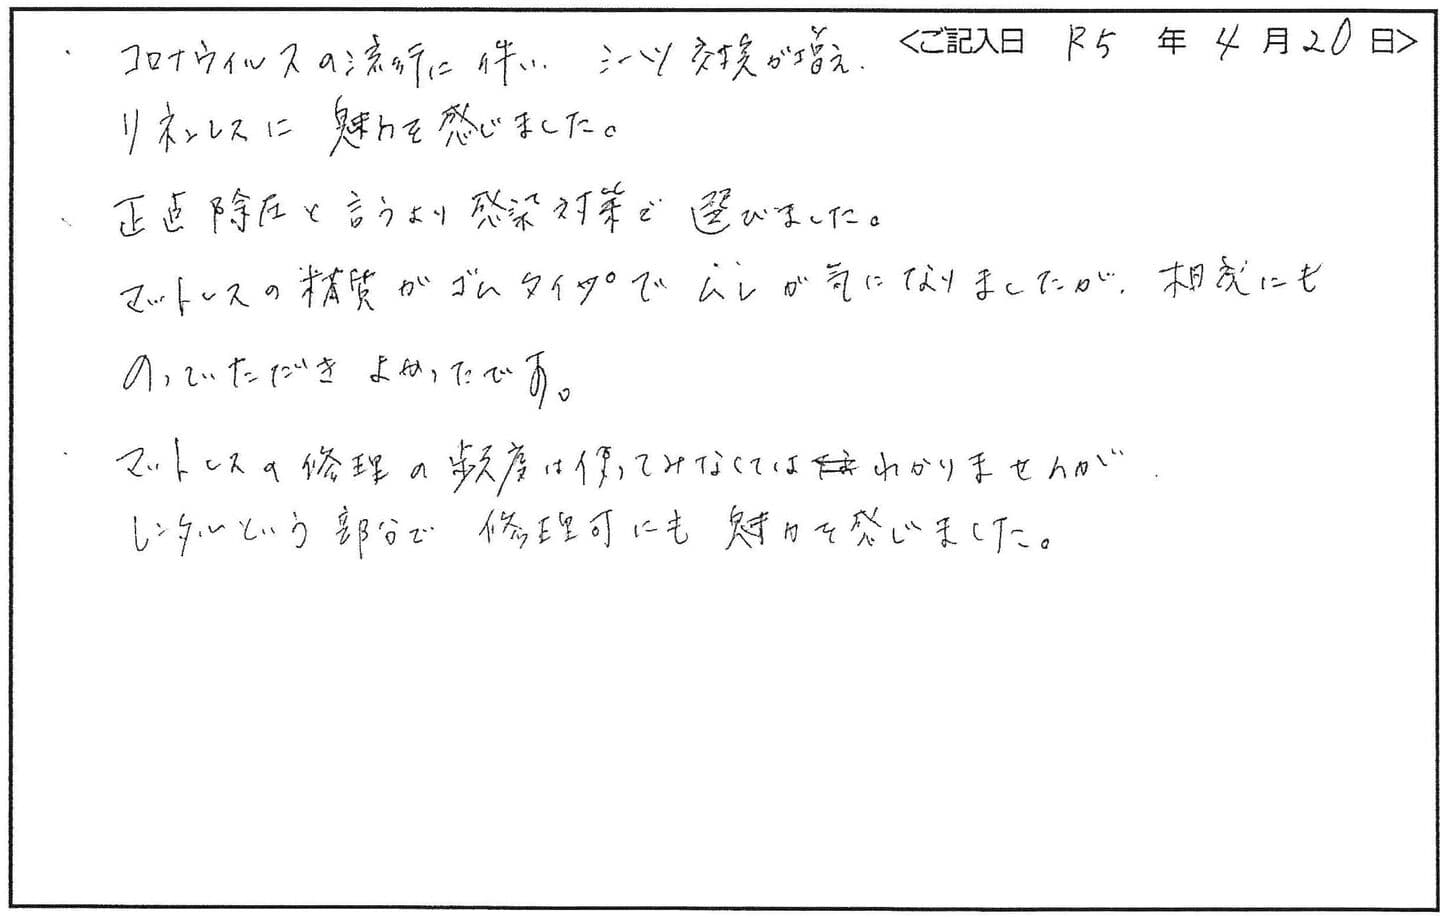 <ご記入日 R5 年 4 月 20 日>
・コロナウイルスの流行に伴い、シーツ交換が増え、
リネンレスに魅力を感じました。
・正直除圧と言うより感染対策で選びました。
マットレスの精質がゴムタイプでムレが気になりましたが、相談にも
のっていただきよかったです。
・マットレスの修理の頻度は使ってみなくてはわかりませんが、
レンタルという部分で修理可にも魅力を感じました。